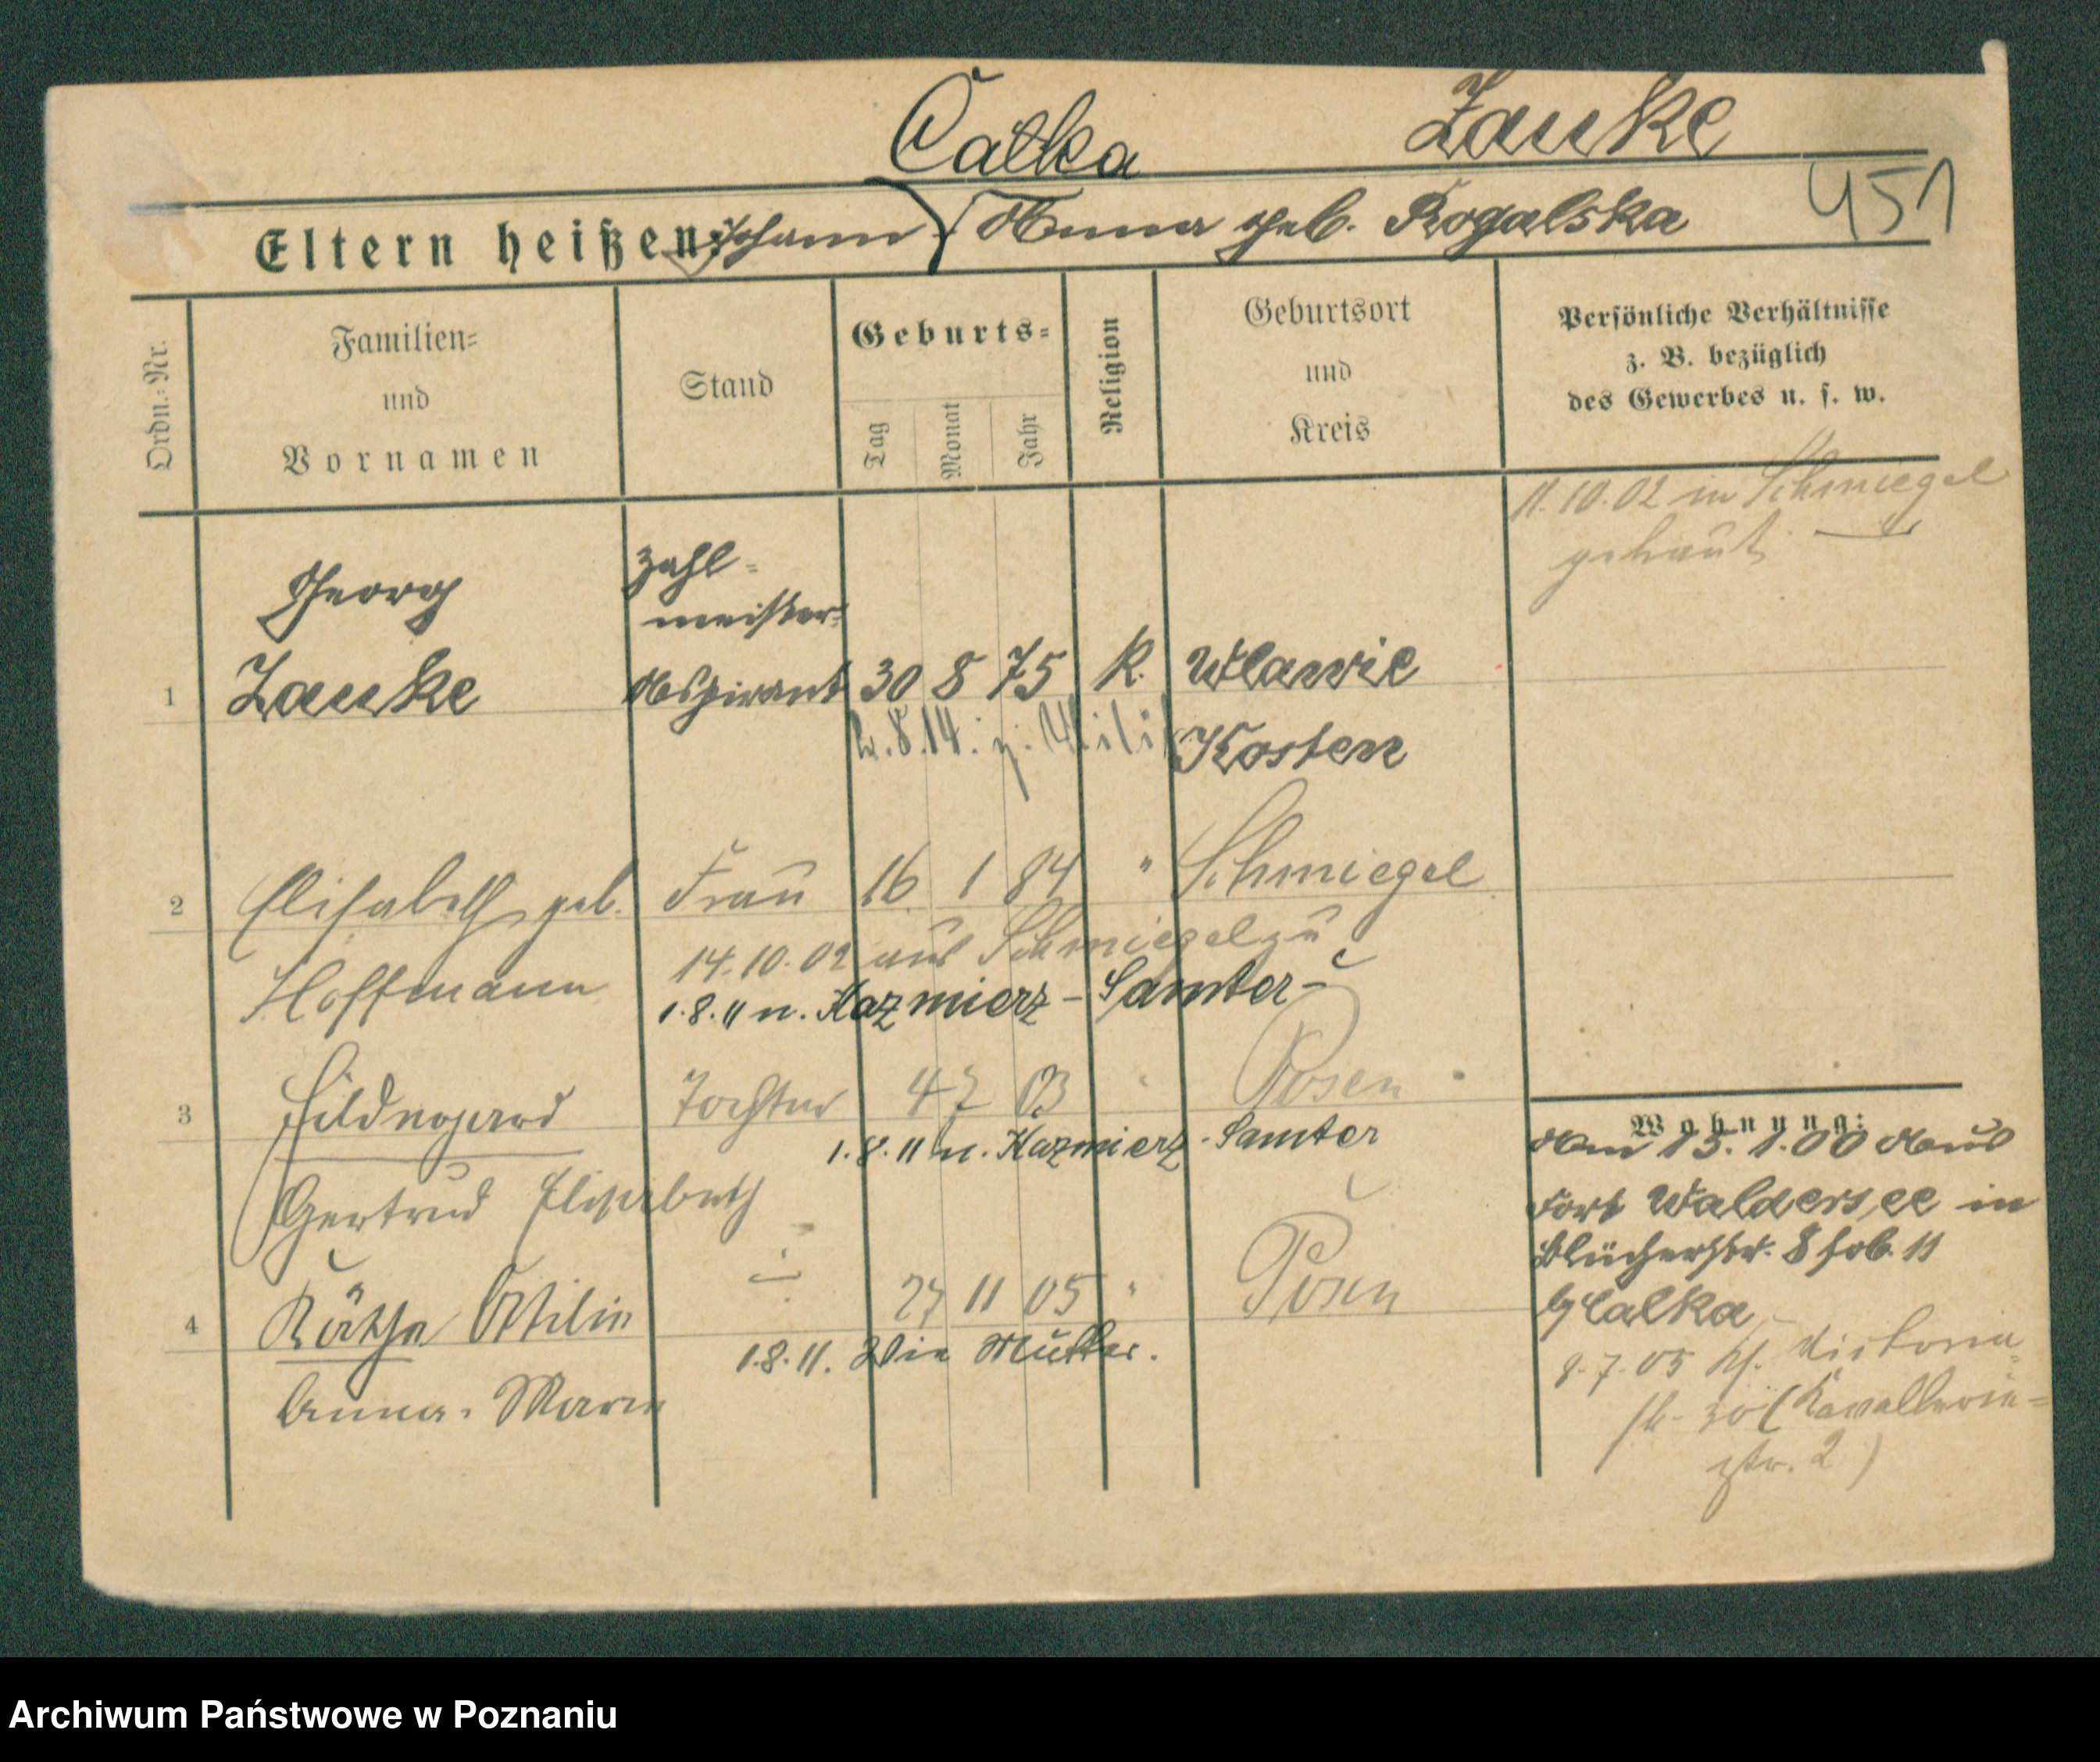 Calka Zauke
Eltern heißen: Johann Anna geb. Rogalska 451
Ordn.-Nr.
Familien-
und
Vornamen
Stand
Geburts-
Tag Monat Jahr
Religion
Geburtsort
und
Kreis
Persönliche Verhältnisse
z. B. bezüglich
des Gewerbes u. s. w.
11.10.02 in Schmiegel
getraut
Georg
Zahl-
meister
1 Zauke Aspirant 30 8 75 K. Wlawie
2.8.14. z. Militär
Kosten
2 Elisabeth geb. Frau 16 1 84 " Schmiegel
Hoffmann
14.10.02 aus Schmiegel zu
1.8.11 n. Kazmierz - Samter
3 Hildegard Tochter 4 7 03 " Posen
1.8.11 n. Kazmierz - Samter
Gertrud Elisabeth
4 Käthe Ottilie 27 11 05 " Posen
1.8.11. Wie Mutter.
Anna Marie
Wohnung:
Am 15.1.00 Aus
Fort Waldersee in
Blücherstr. 8
b/Calka
9.7.05 Victoria
str. 20 (Kavallerie-
str. 2)
Archiwum Państwowe w Poznaniu